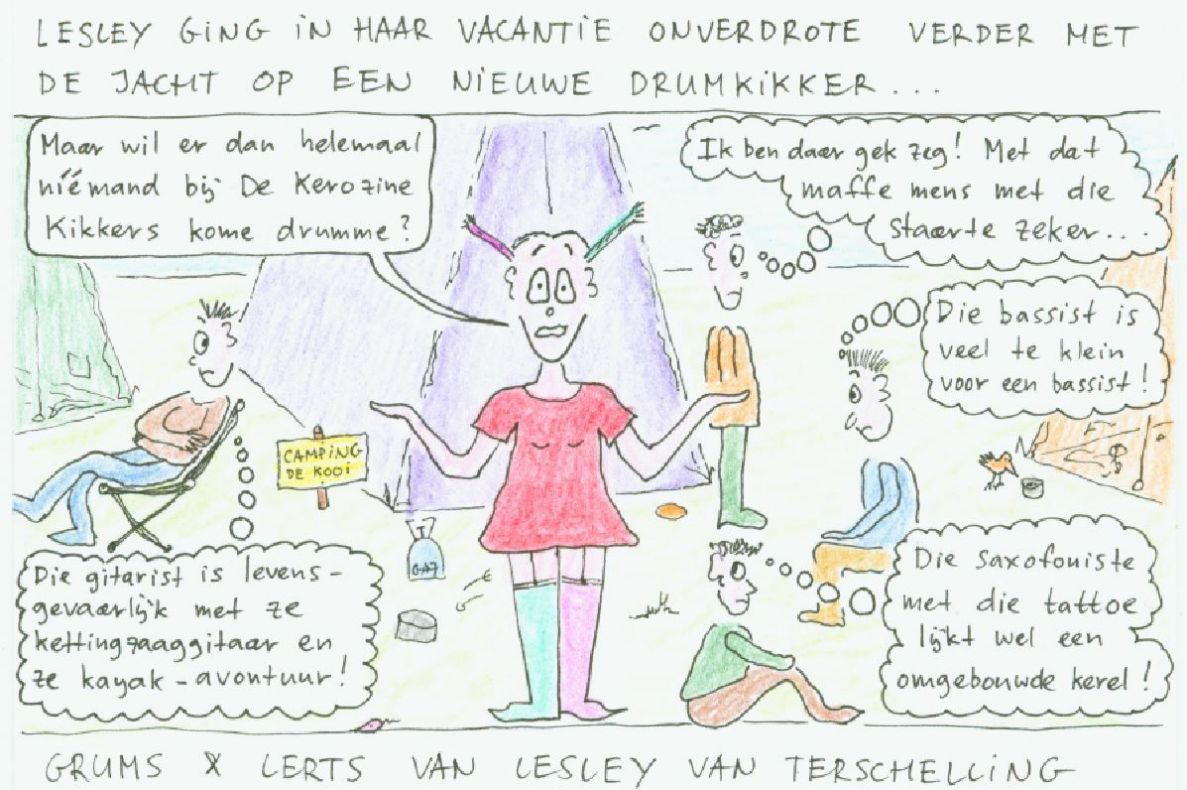 LESLEY GING IN HAAR VACANTIE ONVERDROTE VERDER MET
DE JACHT OP EEN NIEUWE DRUMKIKKER...
Maar wil er dan helemaal
níémand bij De Kerozine
Kikkers kome drumme?
Ik ben daar gek zeg! Met dat
maffe mens met die
staarte zeker...
Die bassist is
veel te klein
voor een bassist!
CAMPING
DE KOOI
GAZ
Die gitarist is levens-
gevaarlijk met ze
kettingzaaggitaar en
ze kayak-avontuur!
Die saxofoniste
met die tattoe
lijkt wel een
omgebouwde kerel!
GRUMS & LERTS VAN LESLEY VAN TERSCHELLING